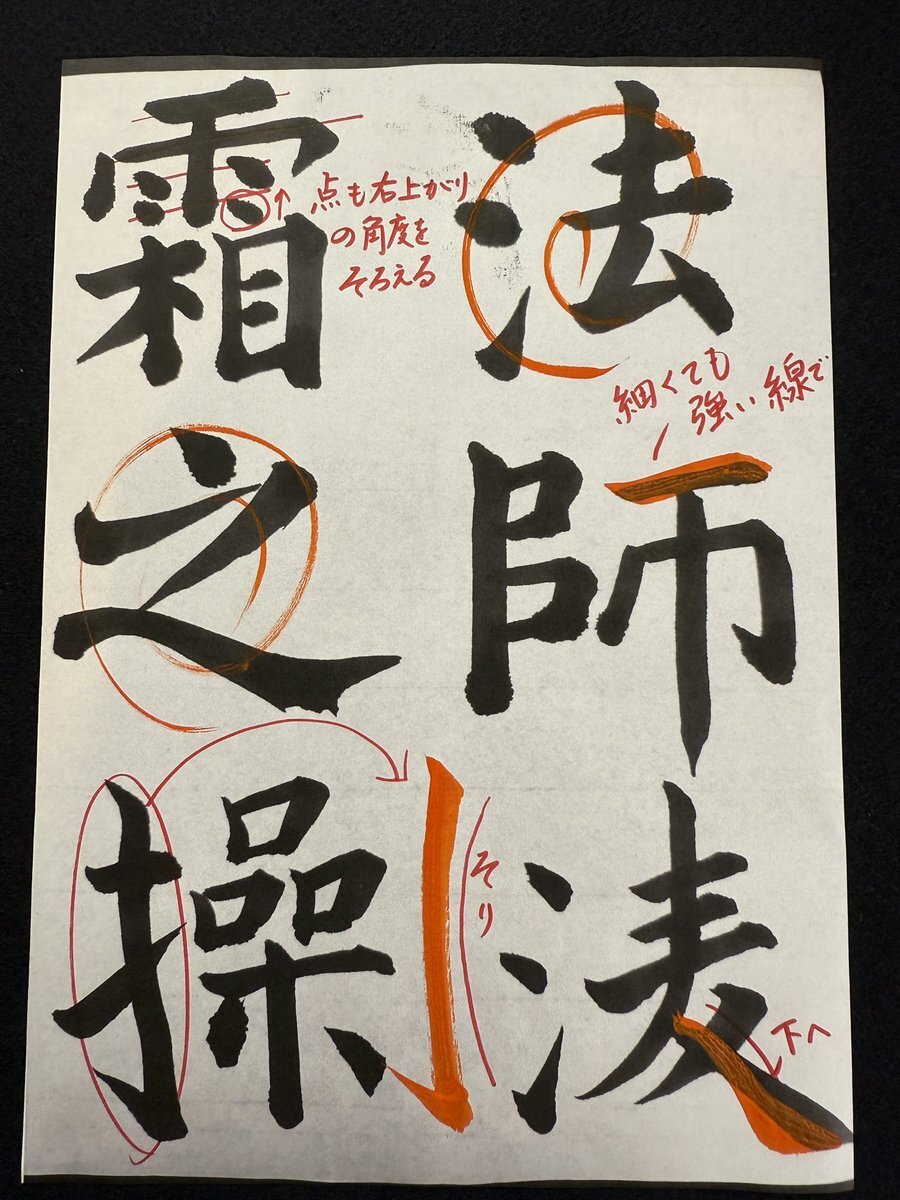 法師淩
霜之操
点も右上がり
の角度を
そろえる
細くても
強い線で
そり
下へ